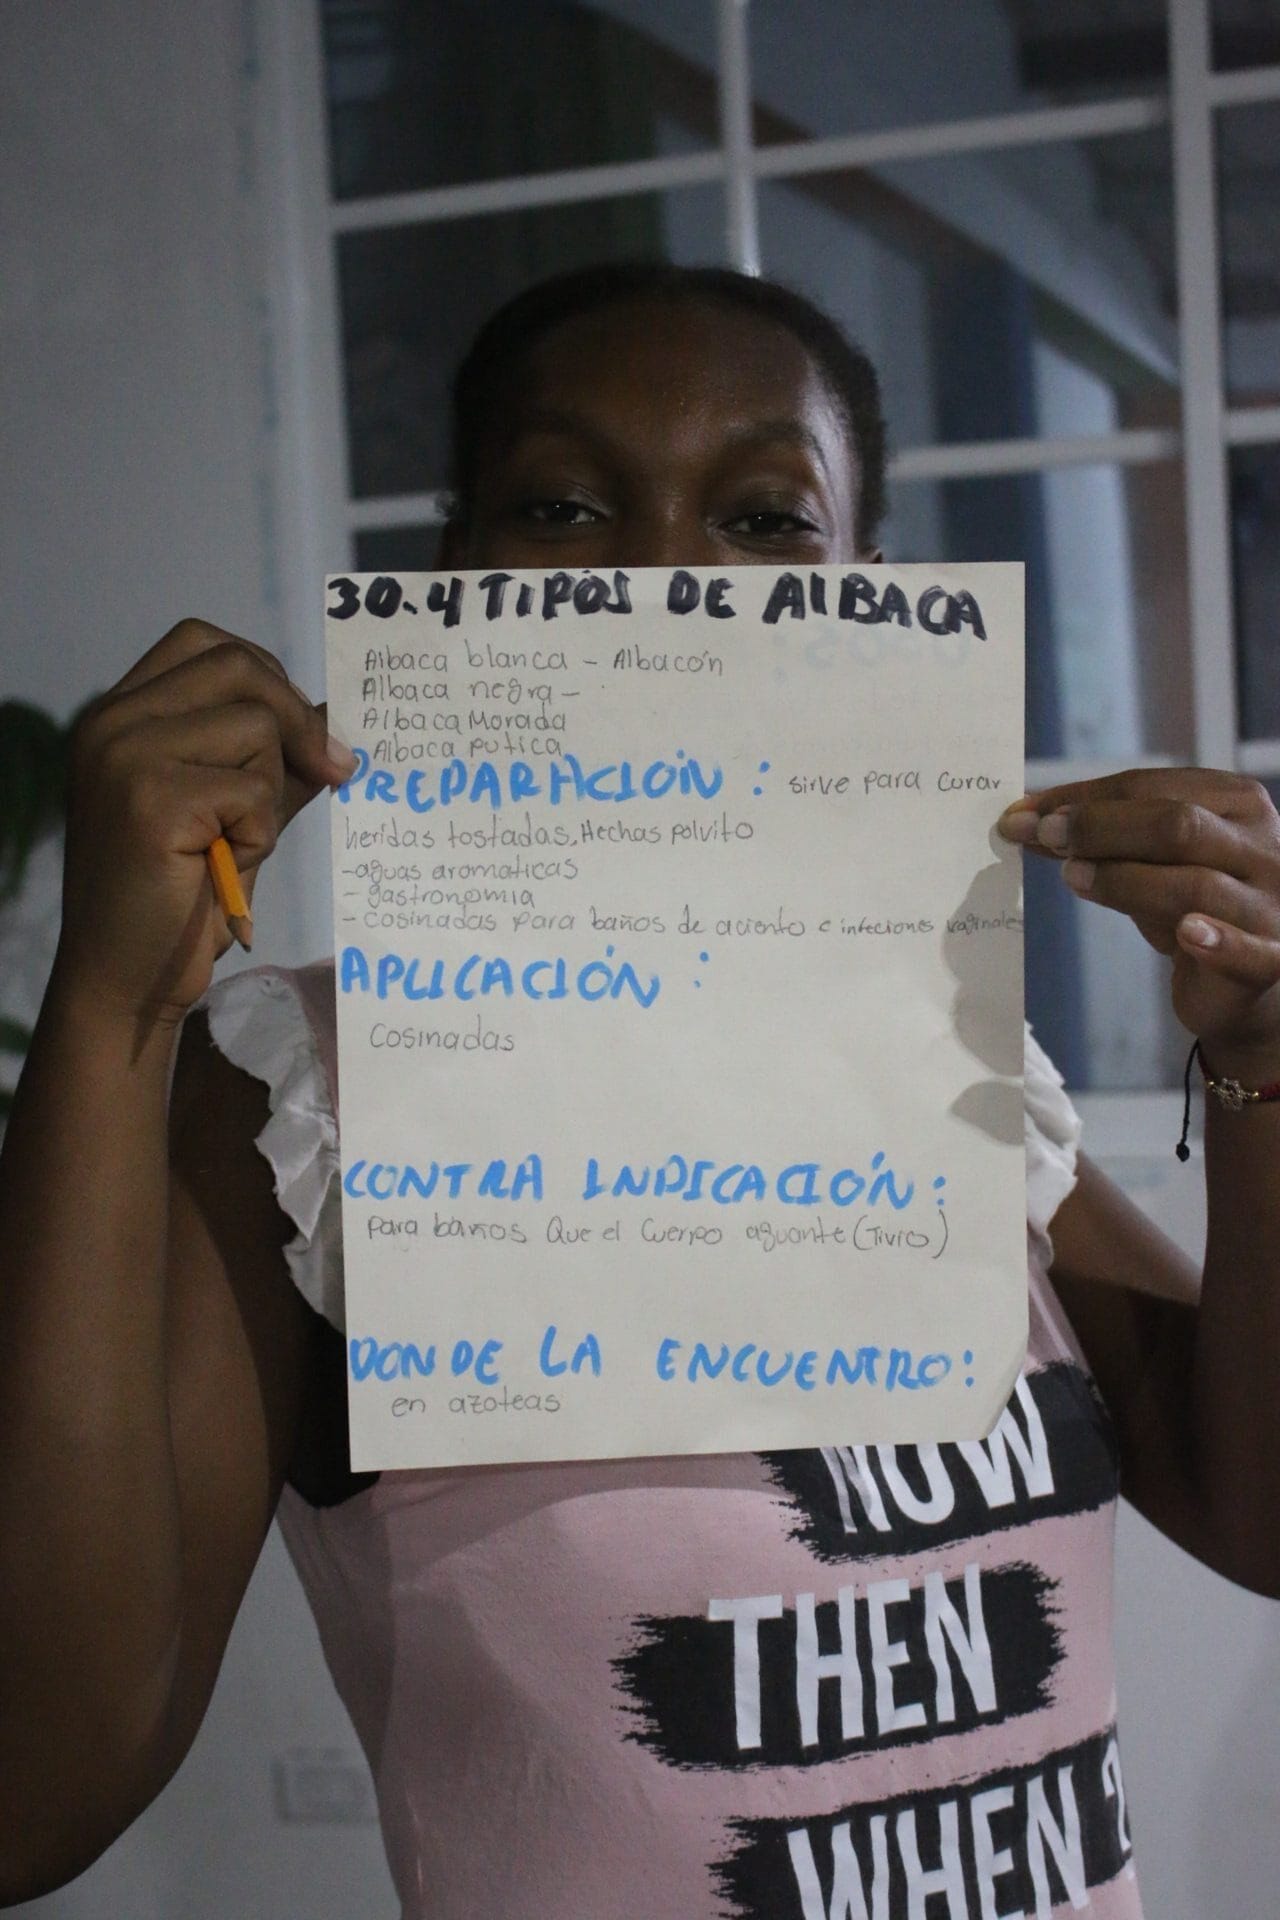 30. 4 TIPOS DE AlBACA
Albaca blanca - Albacón
Albaca negra -
Albaca Morada
Albaca putica
PREPARACIÓN : sirve para curar
heridas tostadas, Hechas polvito
- aguas aromaticas
- gastronomia
- cosinadas para baños de aciento e infeciones vaginales
APLICACIÓN :
Cosinadas
CONTRA INDICACIÓN :
para baños Que el Cuerpo aguante (Tivio)
DONDE LA ENCUENTRO :
en azoteas
NOW
THEN
WHEN ?